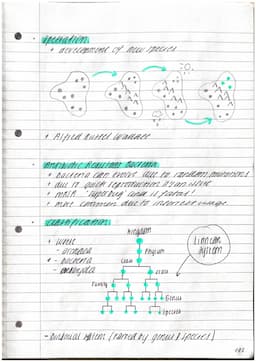 Speciation
• development of new species
• Alfred Russel Wallace
Antibiotic Resistant Bacteria
• bacteria can evolve due to random mutations
• due to quick reproduction
• more common due to incorrect usage
Classification
• Woese
- archaea
- bacteria
- eukaryota
Kingdom
Phylum
Class
Order
Family
Genus
Species
Linnean System
- Binomial system (named by genus & species)